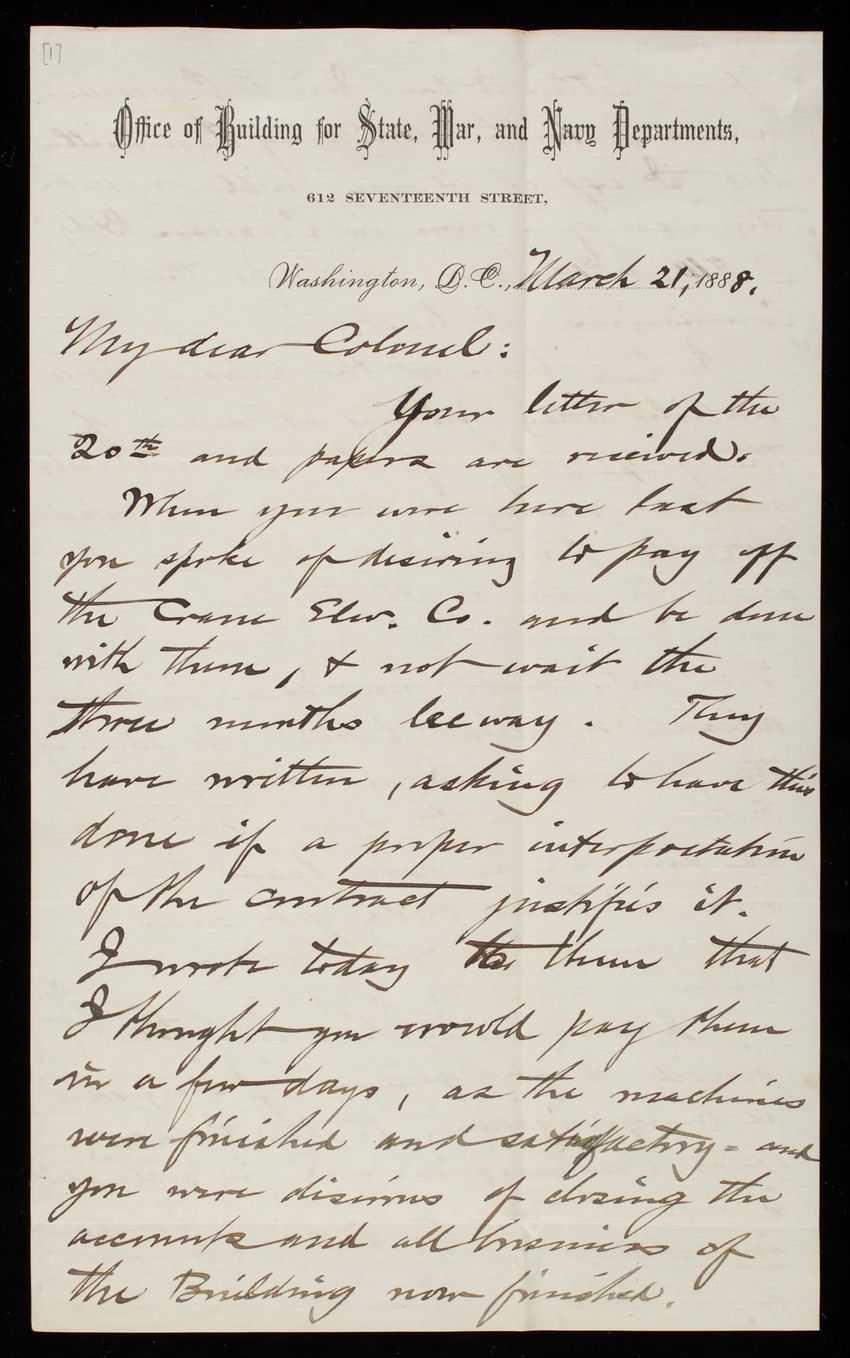 [1]
Office of Building for State, War, and Navy Departments,
612 SEVENTEENTH STREET,
Washington, D. C., March 21, 1888.
My dear Colonel:
Your letter of the
20th and papers are received.
When you were here last
you spoke of desiring to pay off
the Crane Elev. Co. and be done
with them, & not wait the
three months leeway. They
have written, asking to have this
done if a proper interpretation
of the contract justifies it.
I wrote today to them that
I thought you would pay them
in a few days, as the machines
were finished and satisfactory - and
you were desirous of closing the
accounts and all business of
the Building now finished.